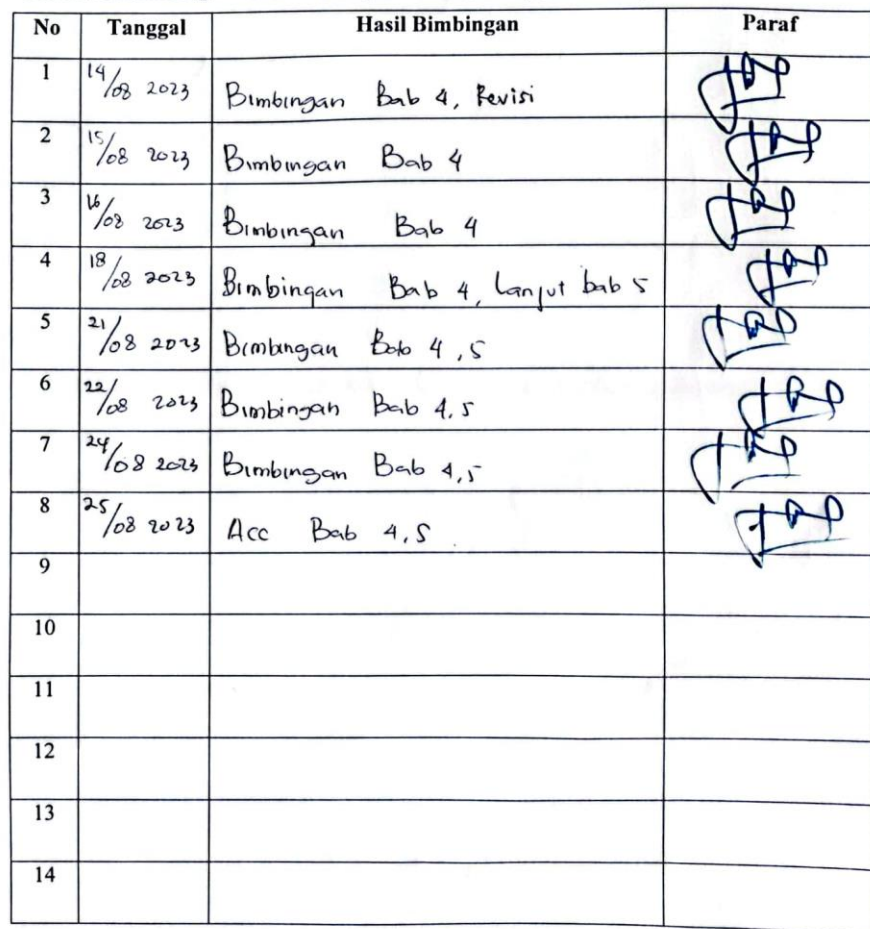 No Tanggal Hasil Bimbingan Paraf
1 14/08 2023 Bimbingan Bab 4, Revisi
2 15/08 2023 Bimbingan Bab 4
3 16/08 2023 Bimbingan Bab 4
4 18/08 2023 Bimbingan Bab 4, Lanjut bab 5
5 21/08 2023 Bimbingan Bab 4,5
6 22/08 2023 Bimbingan Bab 4,5
7 24/08 2023 Bimbingan Bab 4,5
8 25/08 2023 Acc Bab 4,5
9
10
11
12
13
14